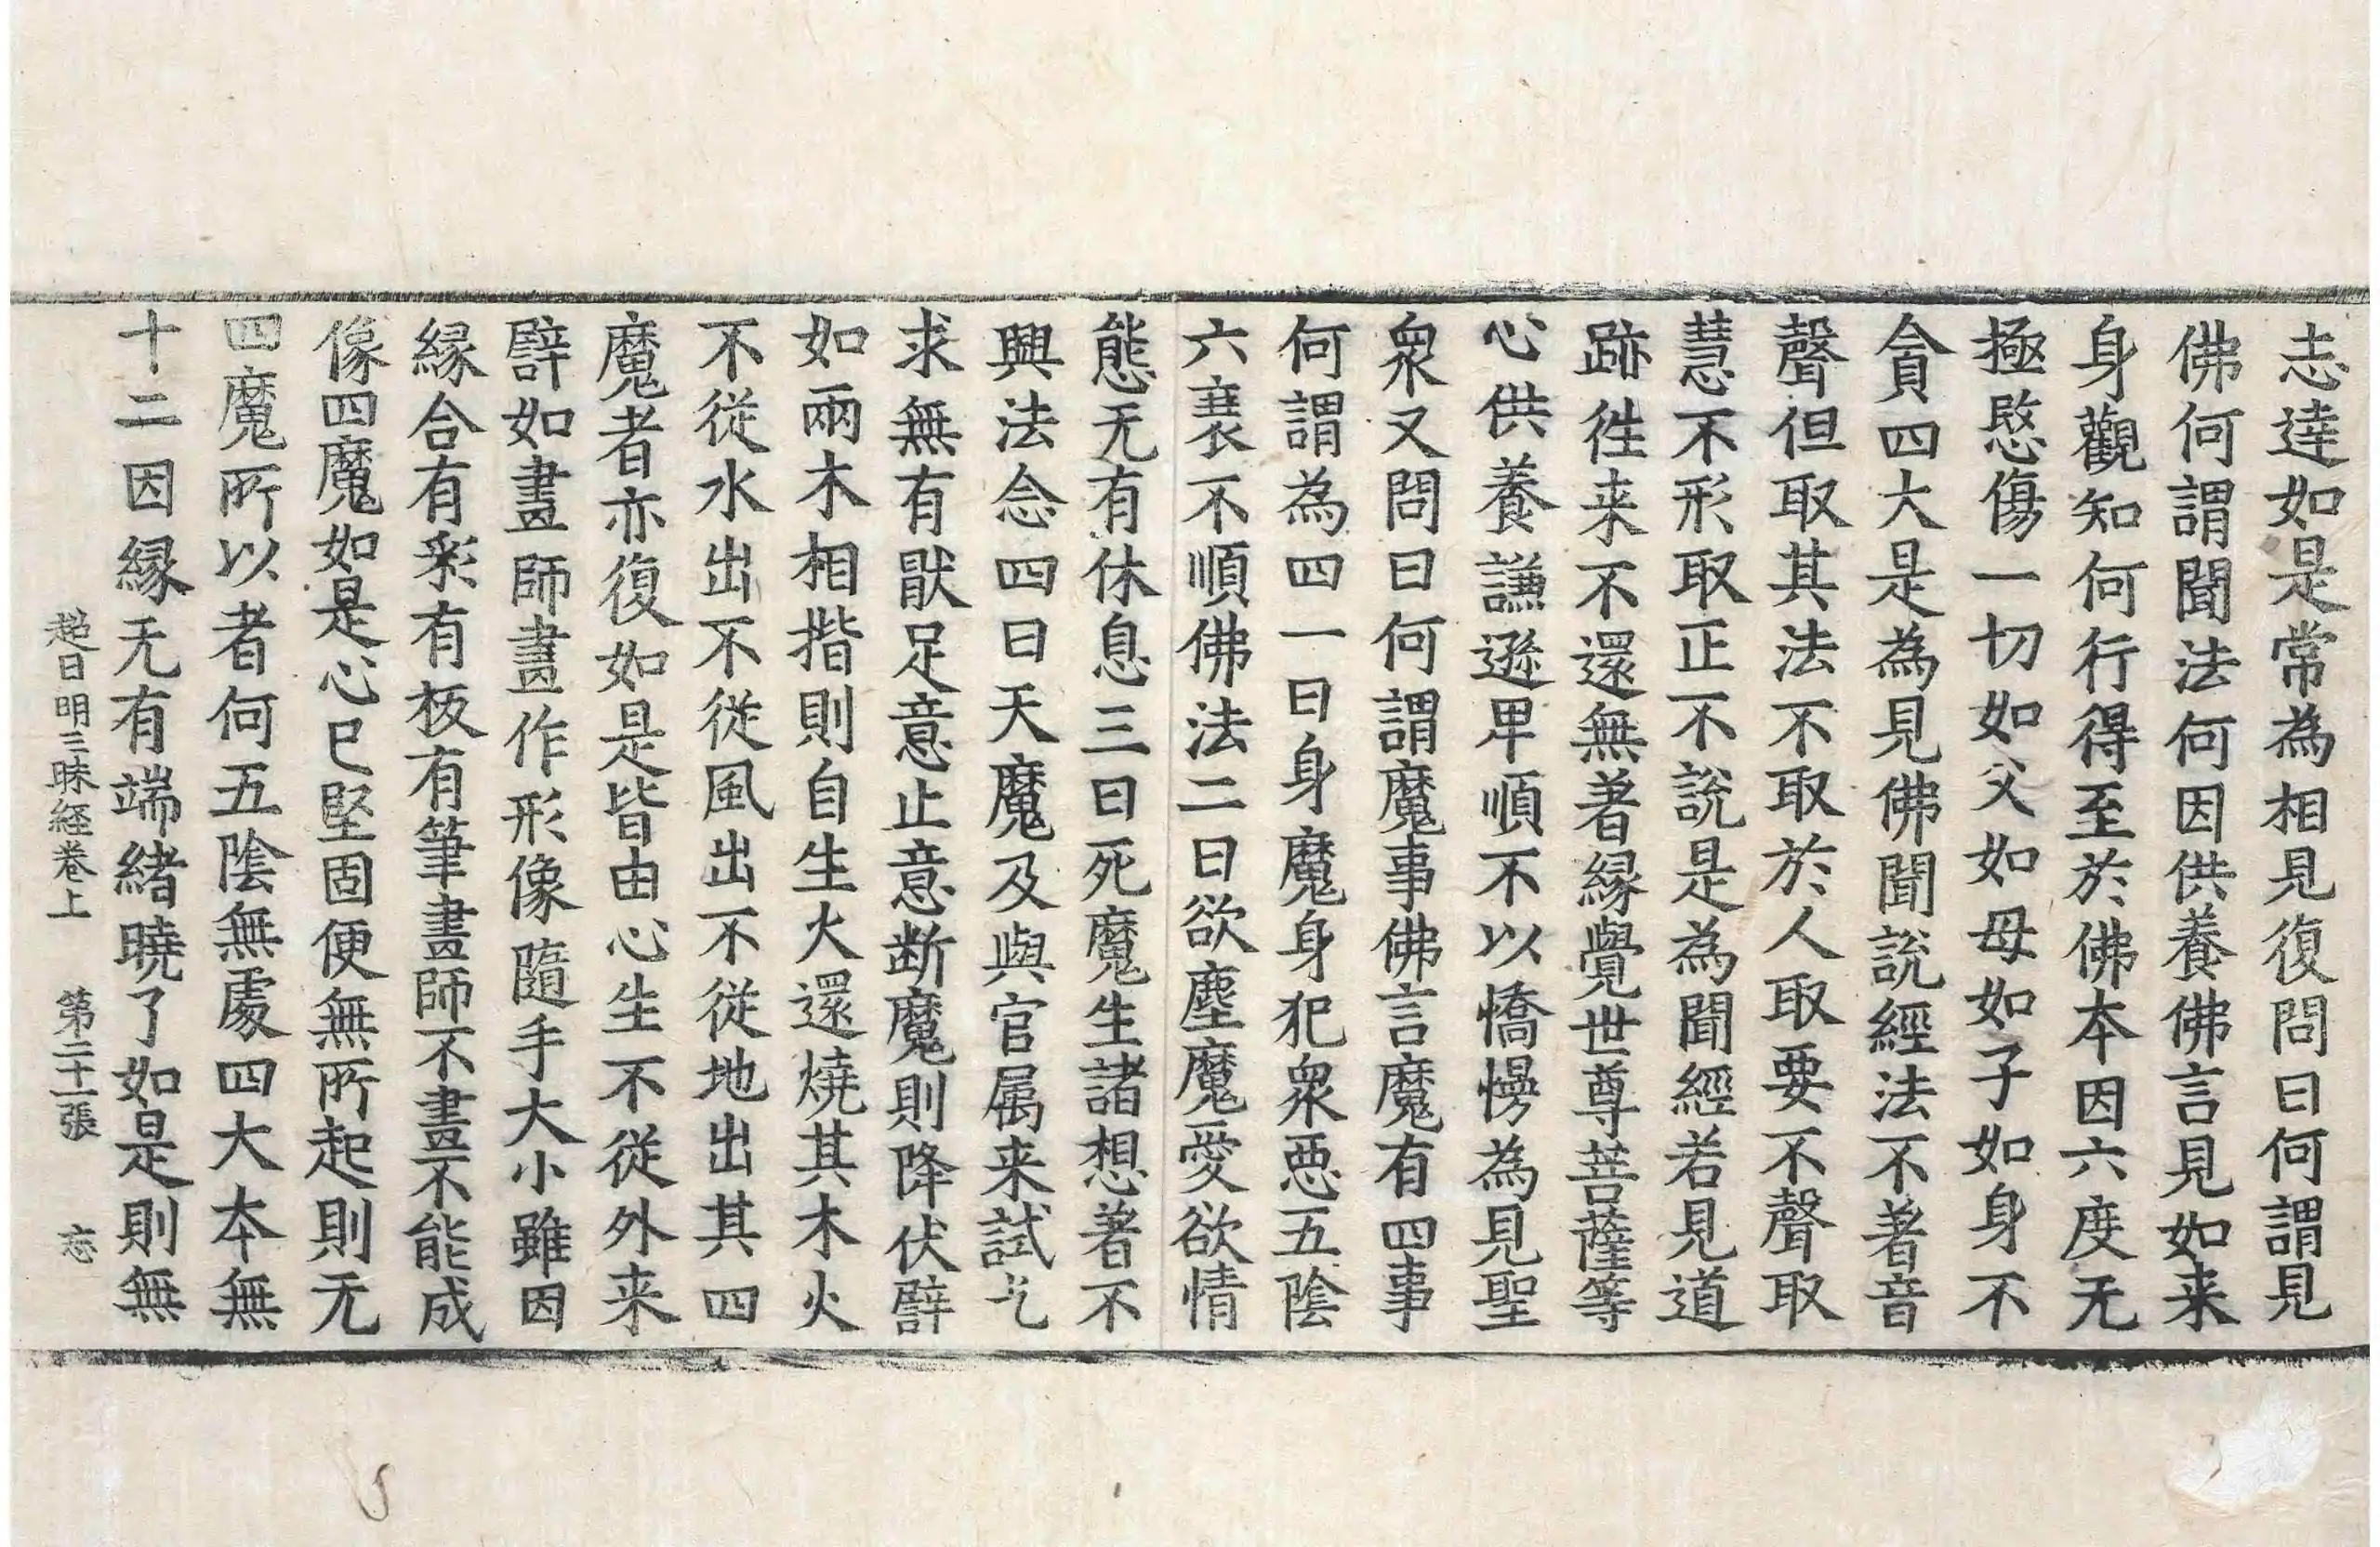 志達如是常為相見復問曰何謂見
佛何謂聞法何因供養佛言見如来
身觀知何行得至於佛本因六度无
極愍傷一切如父如母如子如身不
貪四大是為見佛聞說經法不著音
聲但取其法不取於人取要不聲取
慧不形取正不說是為聞經若見道
跡徃来不還無著緣覺世尊菩薩等
心供養謙遜卑順不以憍慢為見聖
衆又問曰何謂魔事佛言魔有四事
何謂為四一曰身魔身犯衆惡五陰
六衰不順佛法二曰欲塵魔愛欲情
態无有休息三曰死魔生諸想著不
興法念四曰天魔及與官属来試乞
求無有猒足意止意断魔則降伏譬
如兩木相揩則自生火還燒其木火
不從水出不從風出不從地出其四
魔者亦復如是皆由心生不從外来
譬如畫師畫作形像隨手大小雖因
緣合有彩有板有筆畫師不畫不能成
像四魔如是心已堅固便無所起則无
四魔所以者何五陰無處四大本無
十二因緣无有端緒曉了如是則無
超日明三昧經卷上 第二十一張 忘